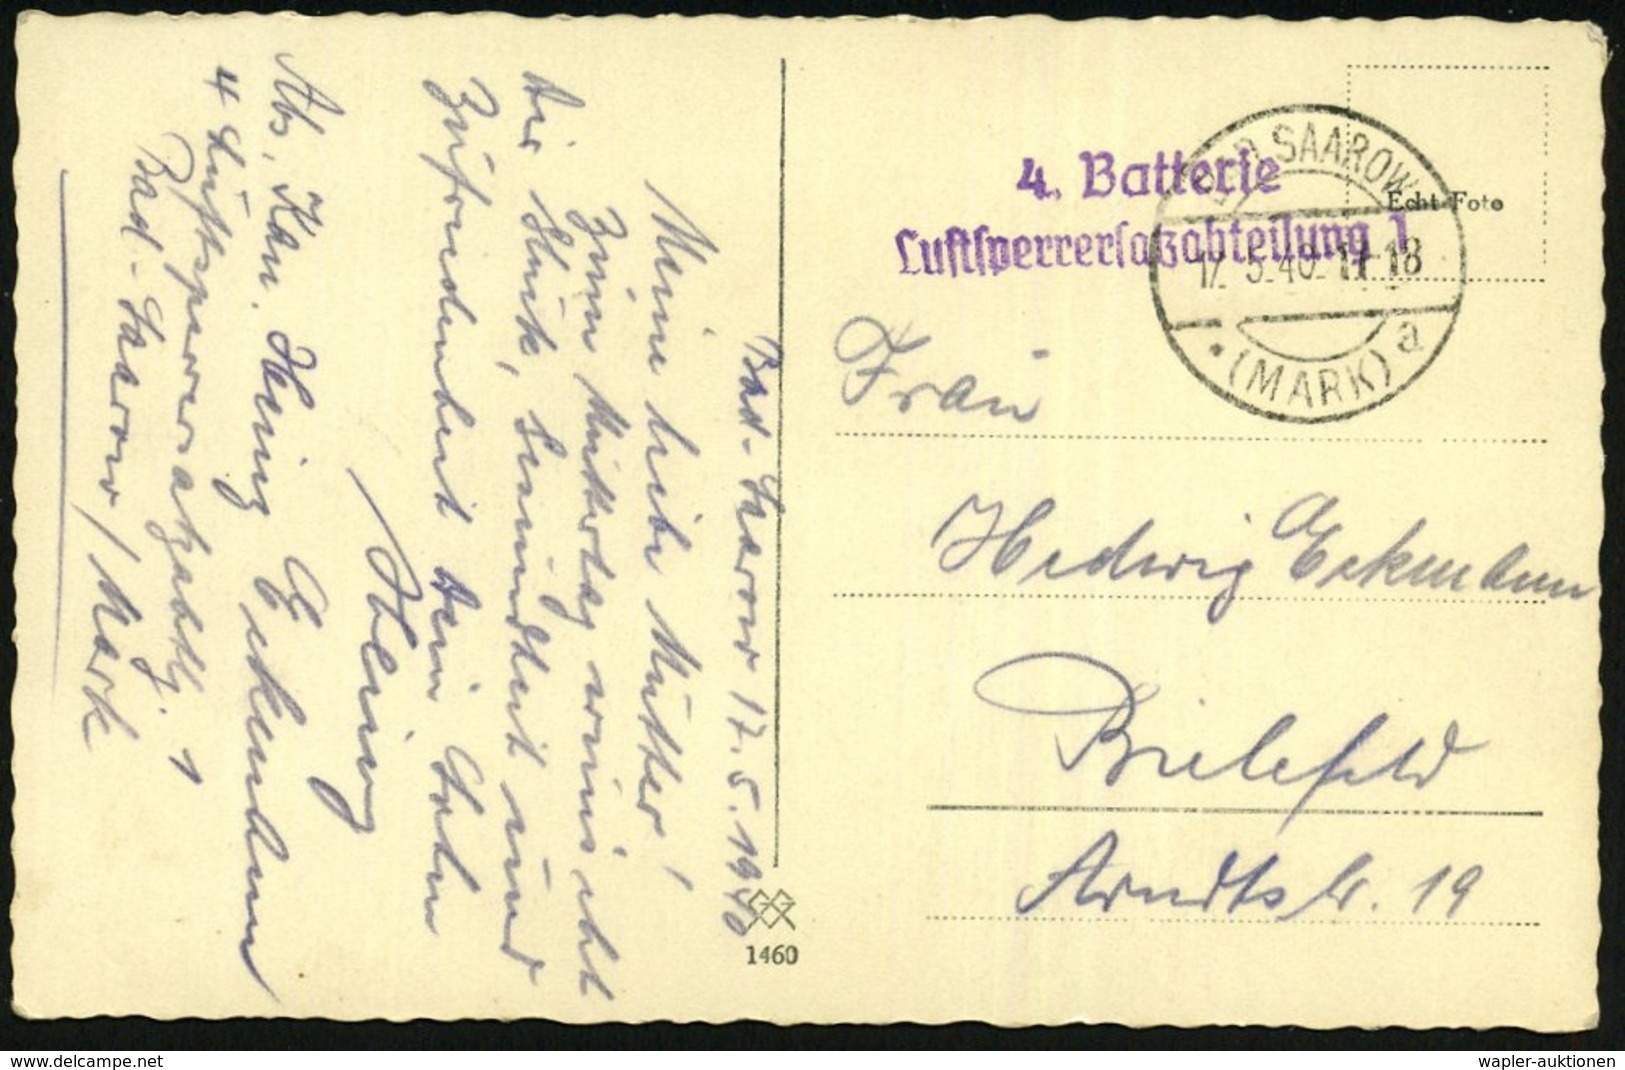 Bad-Saarow 17. 5. 1940
Meine liebe Mutter!
Zum Muttertag wünscht
Dir Glück, Gesundheit und
Zufriedenheit Dein Sohn
Heinz
Abs. Kan. Heinz Eckmann
4 Luftsperrersatzabtlg. 1
Bad-Saarow / Mark
4. Batterie
Luftsperrersatzabteilung 1
BAD SAAROW
17. 5. 40. 17-18
(MARK) a
Echt Foto
Frau
Hedwig Eckmann
Bielefeld
Arndtstr. 19
1460
www.delcampe.net
wapler-auktionen